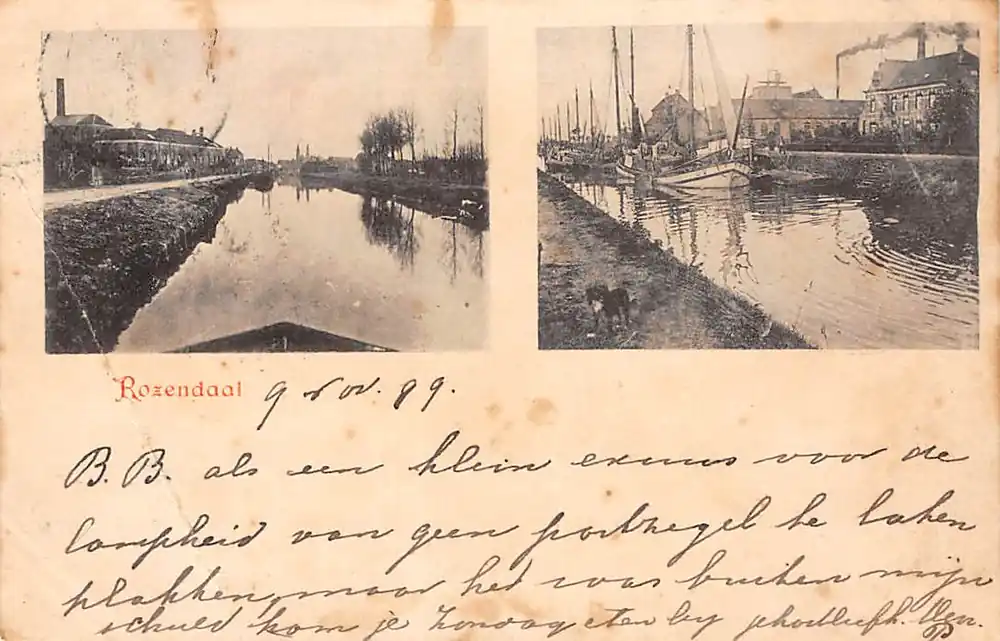 Rozendaal 9 Nov. 99.
B.B. als een klein excuus voor de
lompheid van geen postzegel te laten
plakken, maar het was buiten mijn
schuld kom je Zondag eten by